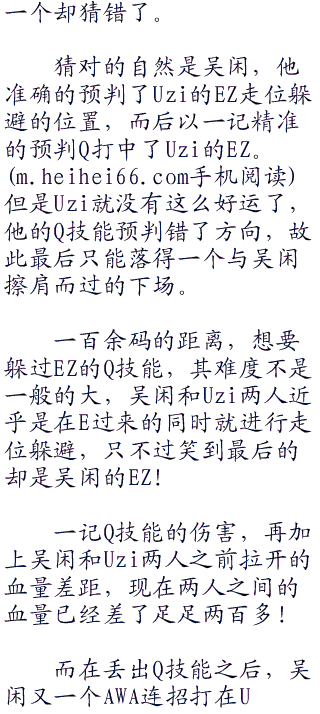 一个却猜错了。
猜对的自然是吴闲，他
准确的预判了Uzi的EZ走位躲
避的位置，而后以一记精准
的预判Q打中了Uzi的EZ。
(m.heihei66.com手机阅读)
但是Uzi就没有这么好运了，
他的Q技能预判错了方向，故
此最后只能落得一个与吴闲
擦肩而过的下场。
一百余码的距离，想要
躲过EZ的Q技能，其难度不是
一般的大，吴闲和Uzi两人近
乎是在E过来的同时就进行走
位躲避，只不过笑到最后的
却是吴闲的EZ!
一记Q技能的伤害，再加
上吴闲和Uzi两人之前拉开的
血量差距，现在两人之间的
血量已经差了足足两百多!
而在丢出Q技能之后，吴
闲又一个AWA连招打在U